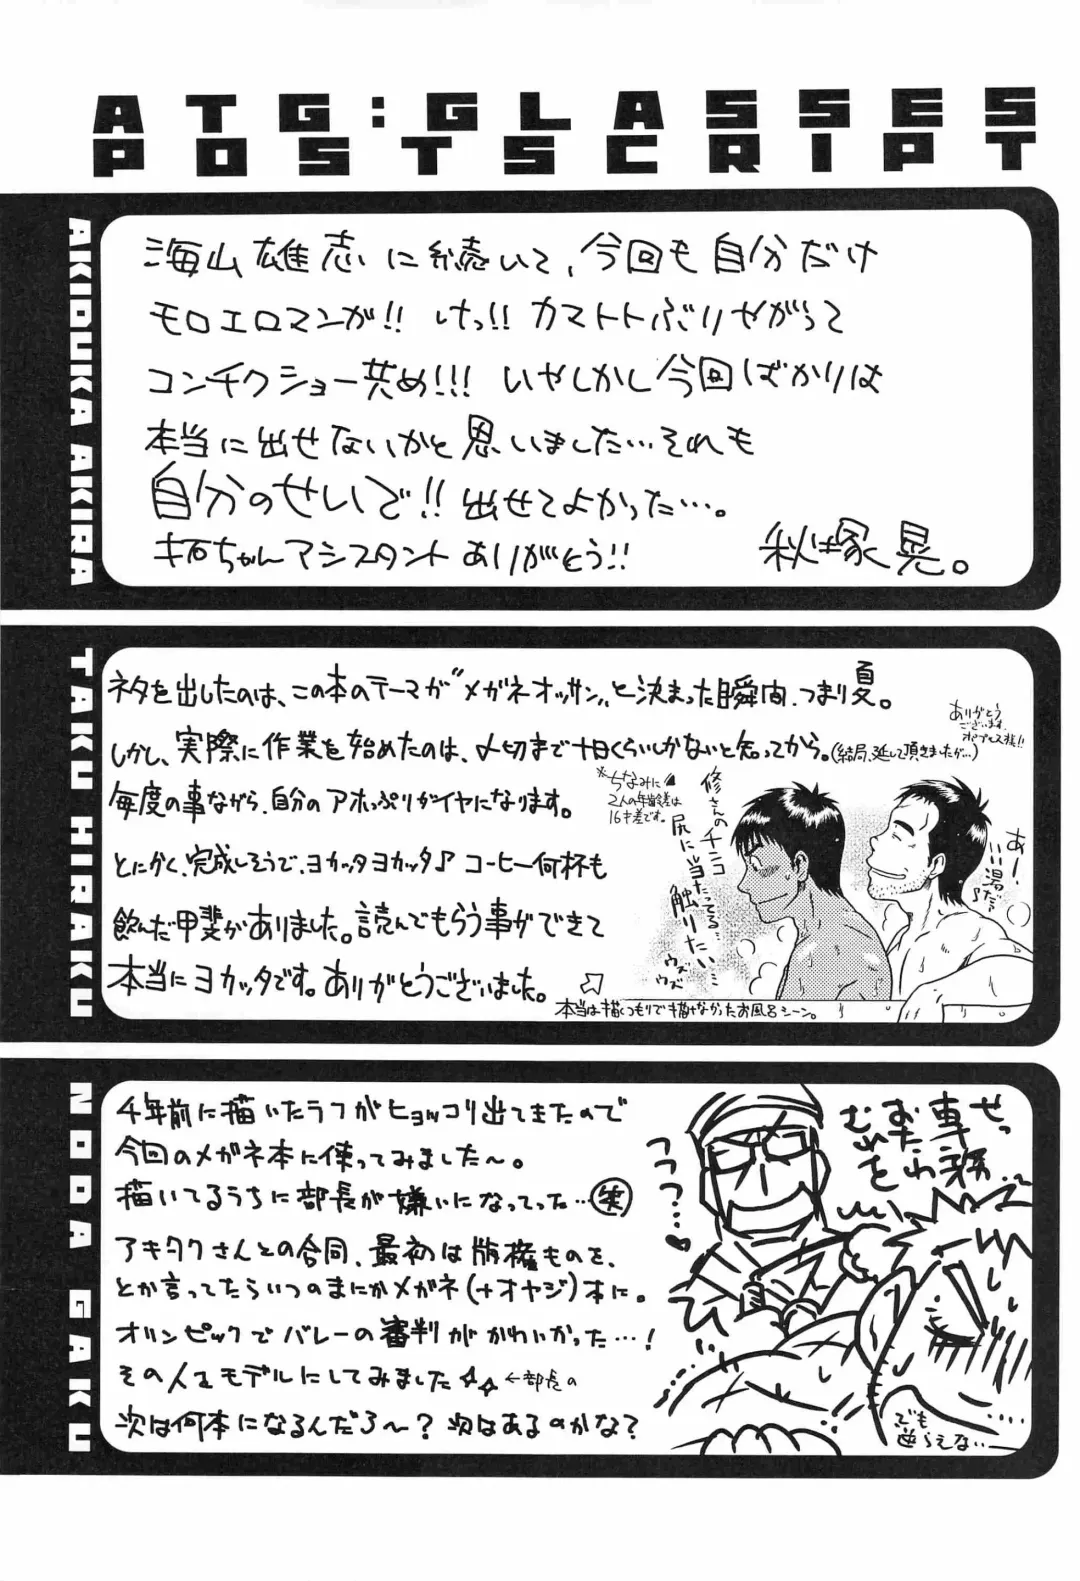 ATG:GLASSES
POSTSCRIPT
AKIDUKA AKIRA
海山雄志に続いて、今回も自分だけ
モロエロマンが!! けっ!! カマトトぶりやがって
コンチクショー共め!!! いやしかし今回ばかりは
本当に出せないかと思いました…それも
自分のせいで!! 出せてよかった…。
拓ちゃんアシスタントありがとう!!
秋塚晃。
TAKU HIRAKU
ネタを出したのは、この本のテーマが"メガネオッサン"と決まった瞬間、つまり夏。
しかし、実際に作業を始めたのは、〆切まで十日くらいしかないと知ってから。(結局、延して頂きましたが…)
ありがとう
ございます、
オポプレス様!!
毎度の事ながら、自分のアホっぷりがイヤになります。
とにかく、完成しそうで、ヨカッタヨカッタ♪ コーヒー何杯も
飲んだ甲斐がありました。読んでもらう事ができて
本当にヨカッタです。ありがとうございました。
※ちなみに
2人の年齢差は
16才差です。
修さんのチ○コ
尻に当たってる…
触りたい…
ウズ
ウズ
あー!
いい湯だぁ♪
本当は描くつもりで描けなかったお風呂シーン。
NODA GAKU
4年前に描いたラフがヒョッコリ出てきたので
今回のメガネ本に使ってみました〜。
描いてるうちに部長が嫌いになってった…(笑)
アキタクさんとの合同、最初は版権ものを、
とか言ってたらいつのまにかメガネ(+オヤジ)本に。
オリンピックでバレーの審判がかわいかった…!
その人をモデルにしてみました☆☆ ←部長の
次は何本になるんだろ〜? 次はあるのかな?
フフフ…♥
せっ
専務
おたわ
むれを
でも
逆らえない